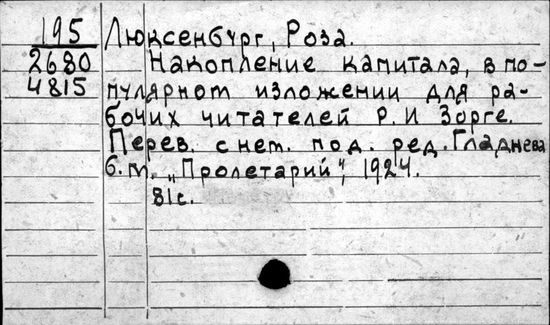 195 Люксенбург, Роза.
2680 Накопление капитала, в по-
4815 пулярном изложении для ра-
бочих читателей Р. И Зорге.
Перев. с нем. под. ред. Гладнева
б. м. „Пролетарий", 1924.
81с.